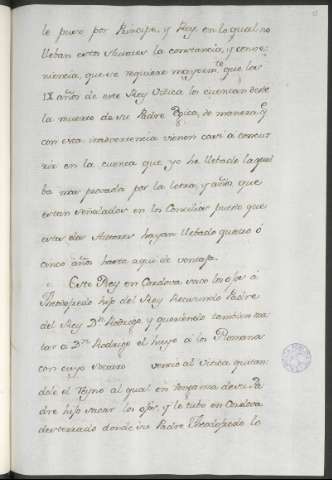 le puso por Principe, y Rey en lo qual no
lleban estos Autores la constancia, y conve-
niencia, que se requiere mayorm.te que los
IX años de este Rey Vitica los cuentan desde
la muerte de su Padre Egica, de manera q.
con esta inadvertencia vienen casi a concur
rir en la cuenta que yo he llebado la qual
ba mas provada por la letra, y años que
estan señalados en los Concilios puesto que
estos dos Autores hayan llebado quatro ó
cinco años hasta aqui de ventaja.
Este Rey en Cordova saco los ojos á
Theodofredo hijo del Rey Recesvindo Padre
del Rey Dn Rodrigo y queriendo tambien ma-
tar a Dn Rodrigo el huyo a los Romanos
con cuyo socorro vencio al Vitica quitan
dole el Reyno al qual en venganza de su Pa
dre hizo sacar los ojos, y le tubo en Cordova
desterrado donde su Padre Theodofredo lo